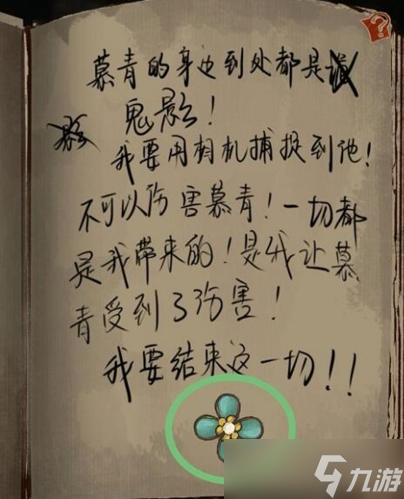 慕青的身边到处都是
鬼影！
我要用相机捕捉到他！
不可以伤害慕青！一切都
是我带来的！是我让慕
青受到了伤害！
我要结束这一切！！
?
九游